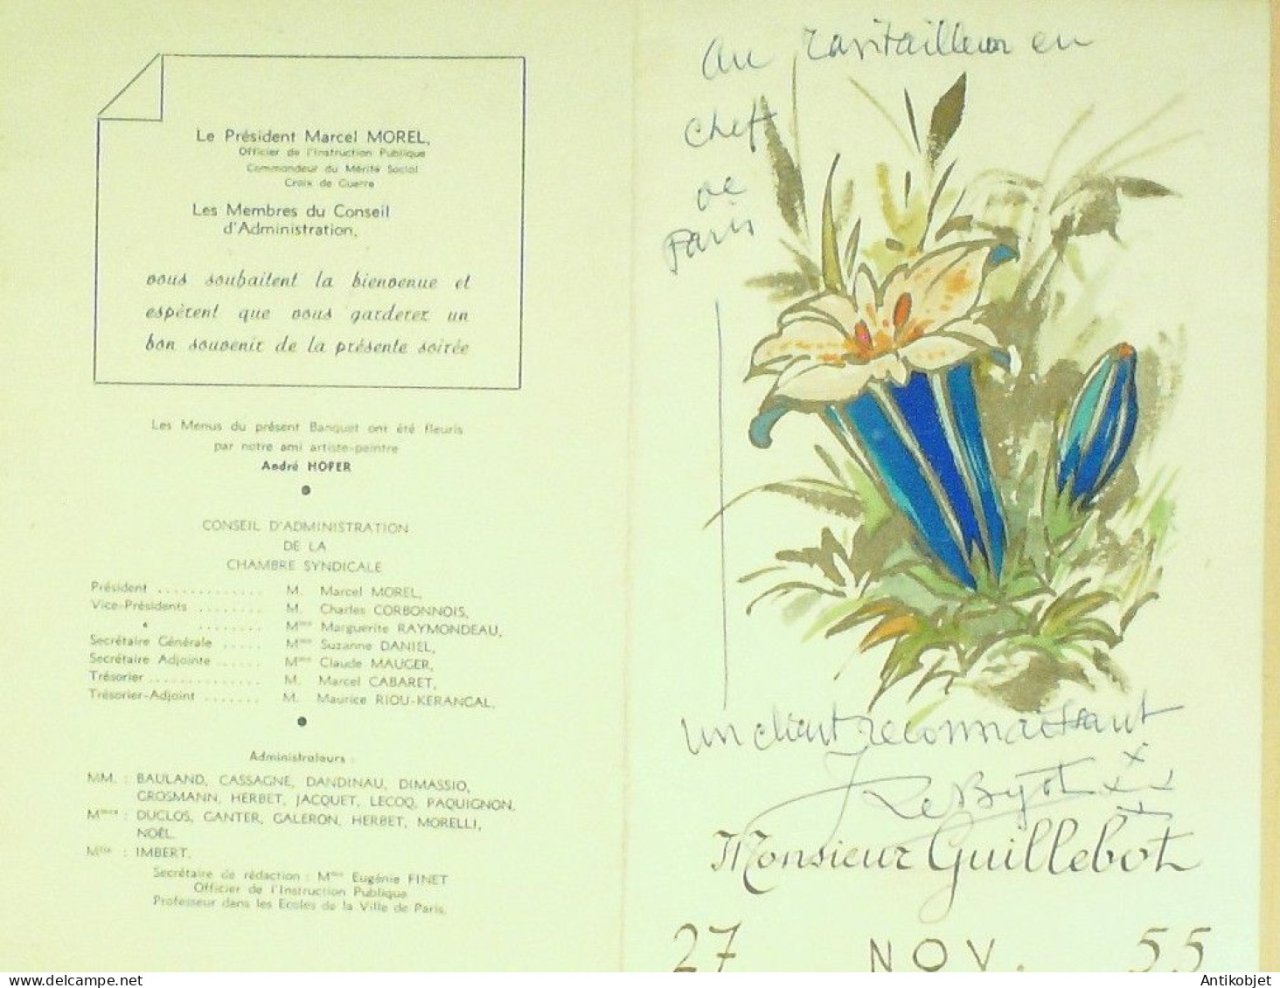 Le Président Marcel MOREL,
Officier de l'Instruction Publique
Commandeur du Mérite Social
Croix de Guerre
Les Membres du Conseil
d'Administration,
vous souhaitent la bienvenue et
espèrent que vous garderez un
bon souvenir de la présente soirée
Les Menus du présent Banquet ont été fleuris
par notre ami artiste-peintre
André HOFER
CONSEIL D'ADMINISTRATION
DE LA
CHAMBRE SYNDICALE
Président ............. M. Marcel MOREL,
Vice-Présidents ........ M. Charles CORBONNOIS,
" ........ Mme Marguerite RAYMONDEAU,
Secrétaire Générale ..... Mme Suzanne DANIEL,
Secrétaire Adjointe ..... Mme Claude MAUGER,
Trésorier .............. M. Marcel CABARET,
Trésorier-Adjoint ....... M. Maurice RIOU-KERANGAL,
Administrateurs :
MM. : BAULAND, CASSAGNE, DANDINAU, DIMASSIO,
GROSMANN, HERBET, JACQUET, LECOQ, PAQUIGNON,
Mmes : DUCLOS, GANTER, GALERON, HERBET, MORELLI,
NOËL.
Mlle : IMBERT.
Secrétaire de rédaction : Mme Eugénie FINET
Officier de l'Instruction Publique
Professeur dans les Ecoles de la Ville de Paris.
Au ravitailleur en
chef
de
Paris
un client reconnaissant
Monsieur Guillebot
27 NOV. 55
www.delcampe.net
Antikobjet